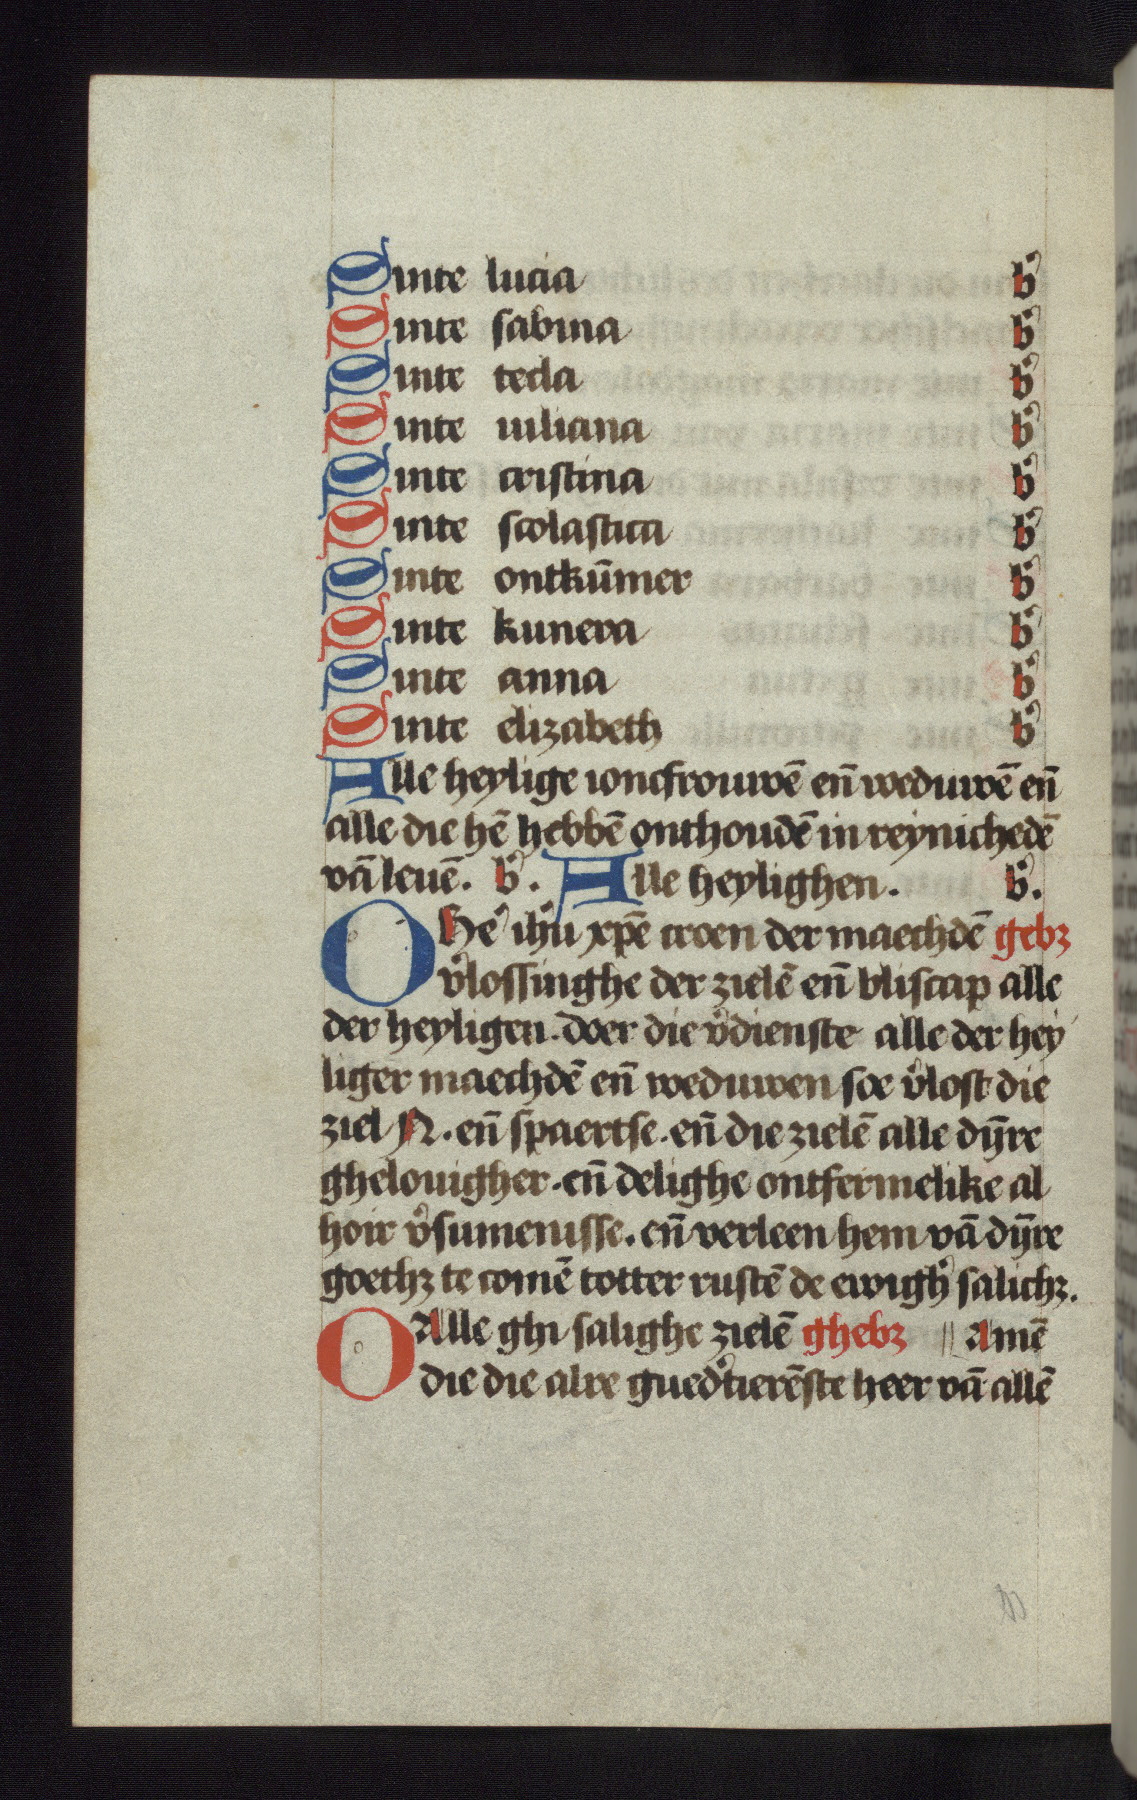 Sinte lucia b'
Sinte sabina b'
Sinte tecla b'
Sinte iuliana b'
Sinte cristina b'
Sinte scolastica b'
Sinte ontkūmer b'
Sinte kunera b'
Sinte anna b'
Sinte elizabeth b'
Alle heylige ioncfrouwē en̄ weduwē en̄
alle die hē hebbē onthoudē in reynichedē
vā leuē. b'. Alle heylighen. b'.
O He' ih'u xp̄e croen der maechdē gebꝫ
v'lossinghe der zielē en̄ bliscap alle
der heyligen. doer die v'dienste alle der hey
liger maechdē en̄ weduwen soe v'lost die
ziel N. en̄ spaertse. en̄ die zielē alle dȳre
ghelouigher. en̄ delighe ontfermelike al
hoir v'sumenisse. en̄ verleen hem vā dȳre
goethꝫ te comē totter rustē de ewigh' salichꝫ.
O Alle ghi salighe zielē ghebꝫ Amē
die die alre gued'tierēste heer vā allē